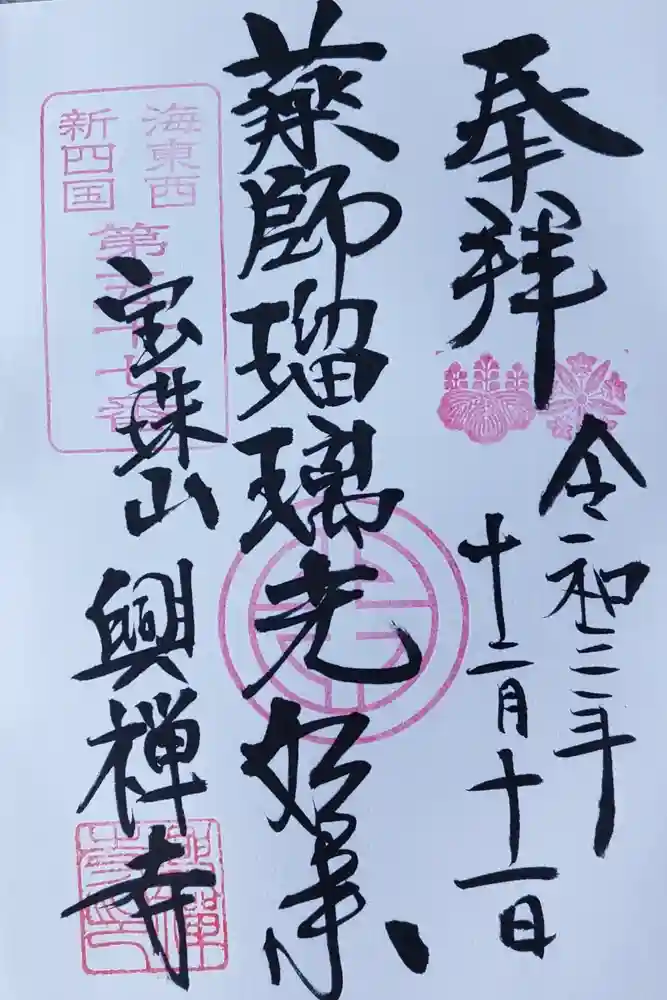 奉拝
令和三年
十二月十一日
薬師瑠璃光如来
海東西
新四国
第五十七番
宝珠山 興禅寺